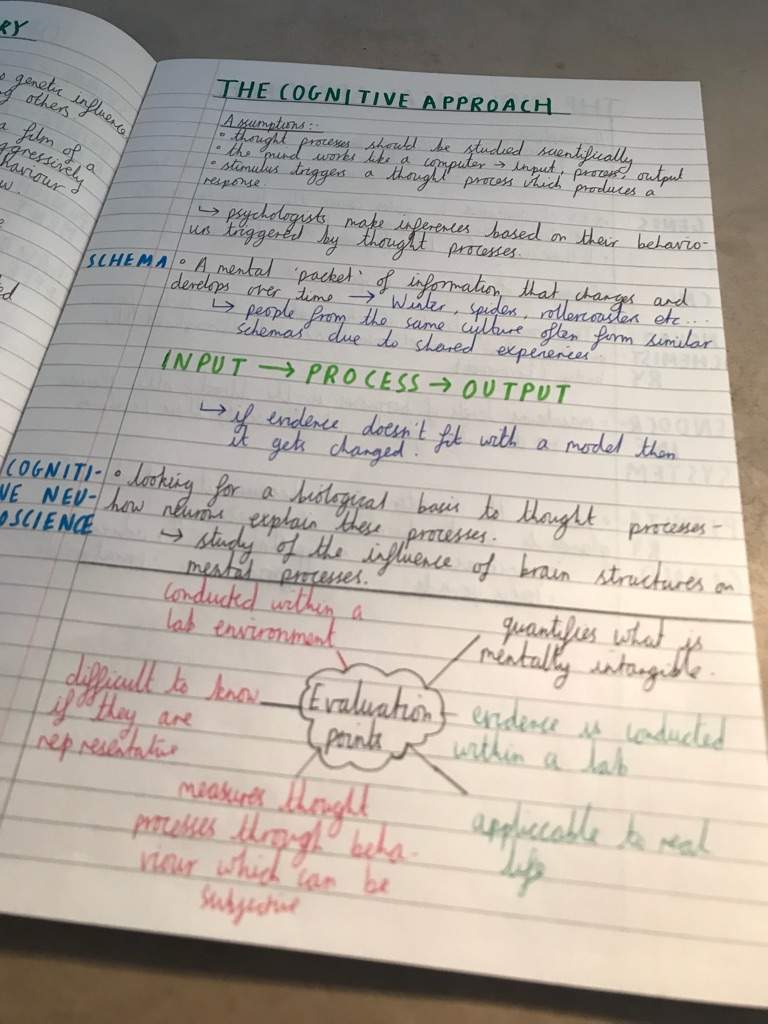 RY
genetic influence
others
a film of a
aggressively
haviour
w.
e
ed
THE COGNITIVE APPROACH
Assumptions:-
• thought processes should be studied scientifically
• the mind works like a computer → input, process, output
• stimulus triggers a thought process which produces a
response.
↳ psychologists make inferences based on their behavio-
urs triggered by thought processes.
SCHEMA
• A mental 'packet' of information that changes and
develops over time → Winter, spiders, rollercoasters etc...
↳ people from the same culture often form similar
schemas due to shared experiences.
INPUT → PROCESS → OUTPUT
↳ if evidence doesn't fit with a model then
it gets changed.
COGNITI-
VE NEU-
OSCIENCE
• looking for a biological basis to thought processes -
how neurons explain these processes.
→ study of the influence of brain structures on
mental processes.
conducted within a
lab environment
quantifies what is
mentally intangible.
difficult to know
if they are
representative
Evaluation
points
evidence is conducted
within a lab
measures thought
processes through beha-
viour which can be
subjective
appliccable to real
life